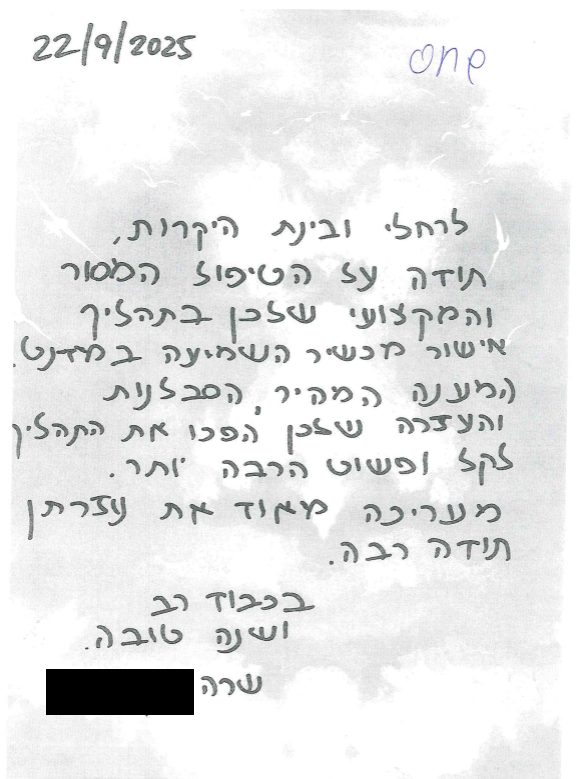 22/9/2025
לרחלי ובינת היקרות,
תודה על הטיפול המסור
והמקצועי שלכן בתהליך
אישור מכשיר השמיעה במדנט.
המענה המהיר, הסבלנות
והעזרה שלכן הפכו את התהליך
לקל ופשוט הרבה יותר.
מעריכה מאוד את עזרתן
תודה רבה.
בכבוד רב
ושנה טובה.
שרה